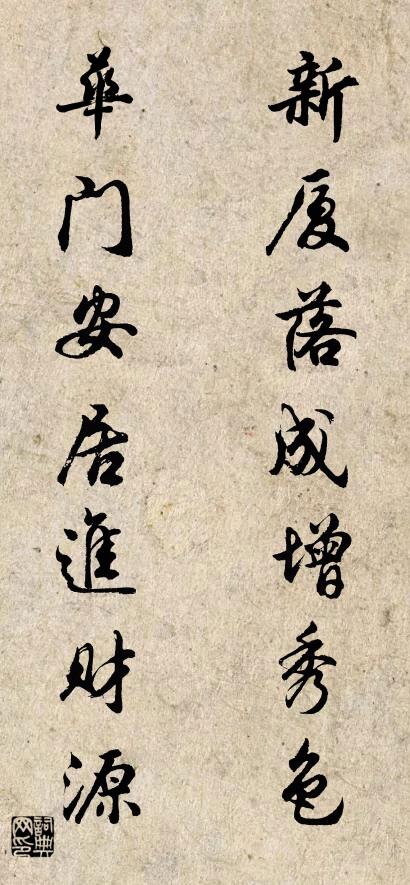 新厦落成增秀色
華门安居進財源
詞典网印